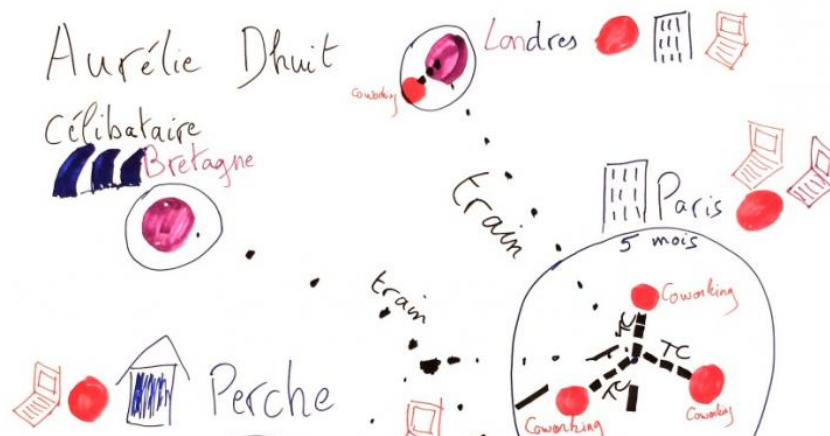 Aurélie Dhuit
Célibataire
Bretagne
Londres
Coworking
train
Paris
5 mois
train
Coworking
TC
TC
TC
Coworking
Coworking
Perche